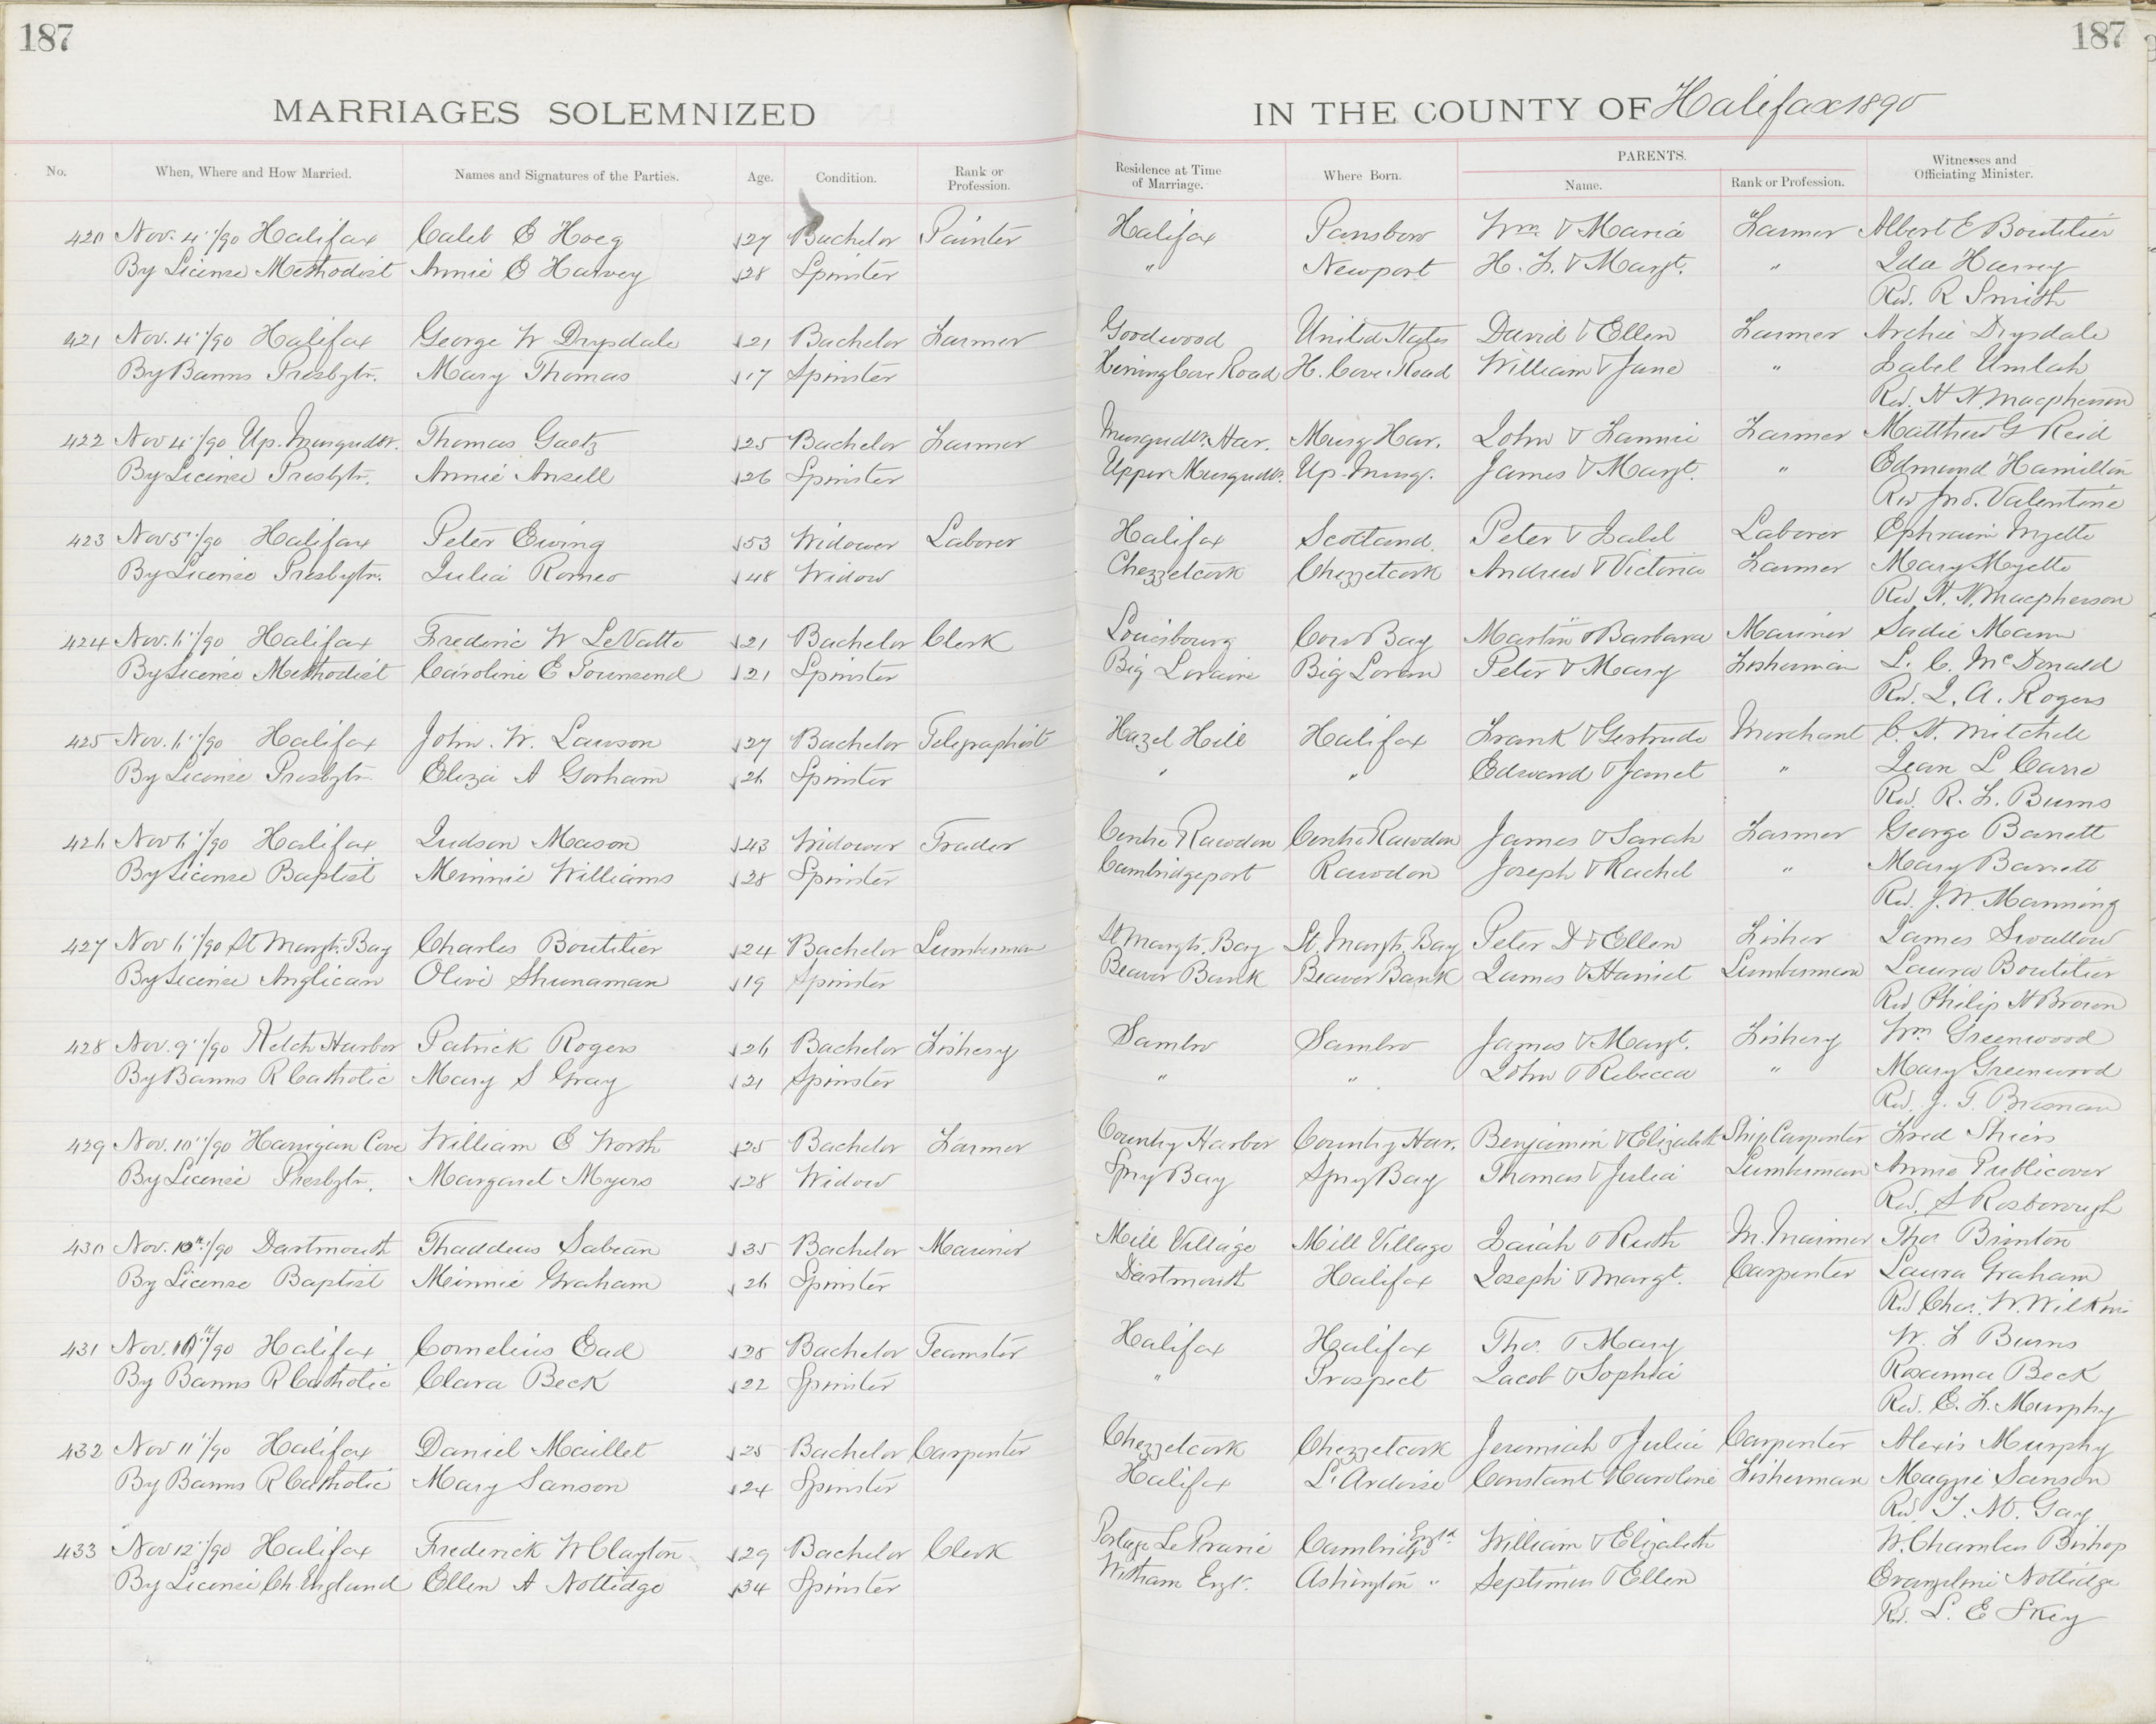 187
187
MARRIAGES SOLEMNIZED
IN THE COUNTY OF Halifax 1890
No. When, Where and How Married. Names and Signatures of the Parties. Age. Condition. Rank or Profession. Residence at Time of Marriage. Where Born. PARENTS. Name. Rank or Profession. Witnesses and Officiating Minister.
420 Nov. 4"/90 Halifax Caleb E Hoeg 27 Bachelor Painter Halifax Parrsboro Wm & Maria Farmer Albert E Boutilier
By License Methodist Annie E Harvey 28 Spinster " Newport H. F. & Margt. " Ida Harvey
Rev. R Smith
421 Nov. 4"/90 Halifax George W Drysdale 21 Bachelor Farmer Goodwood United States David & Ellen Farmer Archie Drysdale
By Banns Presbytr. Mary Thomas 17 Spinster Herring Cove Road H. Cove Road William & Jane " Isabel Umlah
Rev. H. H. Macpherson
422 Nov 4"/90 Up. Musquodt. Thomas Gaetz 25 Bachelor Farmer Musquodt. Har. Musq Har. John & Fannie Farmer Matthew G Reid
By License Presbytr. Annie Ansell 26 Spinster Upper Musquodt. Up. Musq. James & Margt. " Edmund Hamilton
Rev Jno. Valentine
423 Nov 5"/90 Halifax Peter Ewing 53 Widower Laborer Halifax Scotland Peter & Isabel Laborer Ephraim Myette
By License Presbytr. Julia Romeo 48 Widow Chezzetcook Chezzetcook Andrew & Victoria Farmer Mary Myette
Rev H. H. Macpherson
424 Nov. 6"/90 Halifax Frederic W LeVatte 21 Bachelor Clerk Louisbourg Cow Bay Martin & Barbara Mariner Sadie Mann
By License Methodist Caroline E Townsend 21 Spinster Big Loraine Big Loran Peter & Mary Fisherman L. C. McDonald
Rev. J. A. Rogers
425 Nov. 6"/90 Halifax John. W. Lawson 27 Bachelor Telegraphist Hazel Hill Halifax Frank & Gertrude Merchant C. H. Mitchell
By License Presbytr. Eliza A Gorham 26 Spinster " " Edward & Janet " Jean L
Rev. R. F. Burns
426 Nov 6"/90 Halifax Judson Mason 43 Widower Trader Centre Rawdon Centre Rawdon James & Sarah Farmer George Barrett
By License Baptist Minnie Williams 28 Spinster Cambridgeport Rawdon Joseph & Rachel " Mary Barrett
Rev. J. W. Manning
427 Nov 6"/90 St Margts. Bay Charles Boutilier 24 Bachelor Lumberman St Margts. Bay St. Margts. Bay Peter D & Ellen Fisher James Swallow
By License Anglican Olive Shunaman 19 Spinster Beaver Bank Beaver Bank James & Harriet Lumberman Laura Boutilier
Rev Philip H Brown
428 Nov. 9"/90 Ketch Harbor Patrick Rogers 26 Bachelor Fishery Sambro Sambro James & Margt. Fishery Wm Greenwood
By Banns R Catholic Mary S Gray 21 Spinster " " John & Rebecca " Mary Greenwood
Rev. J. T.
429 Nov. 10"/90 Harrigan Cove William E Worth 25 Bachelor Farmer Country Harbor Country Har. Benjamin & Elizabeth Ship Carpenter Fred Shiers
By License Presbytr. Margaret Myers 28 Widow Spry Bay Spry Bay Thomas & Julia Lumberman Annie Publicover
Rev. S Rosborough
430 Nov. 10th/90 Dartmouth Thaddeus Sabean 35 Bachelor Mariner Mill Village Mill Village Isaiah & Ruth M. Mariner Thos Brinton
By License Baptist Minnie Graham 26 Spinster Dartmouth Halifax Joseph & Margt. Carpenter Laura Graham
Rev Chas. W. Wilkins
431 Nov. 10"/90 Halifax Cornelius Ead 28 Bachelor Teamster Halifax Halifax Tho. & Mary W. F Burns
By Banns R Catholic Clara Beck 22 Spinster " Prospect Jacob & Sophia Rosanna Beck
Rev. E. F. Murphy
432 Nov 11"/90 Halifax Daniel Maillet 25 Bachelor Carpenter Chezzetcook Chezzetcook Jeremiah & Julia Carpenter Alexis Murphy
By Banns R Catholic Mary Sanson 24 Spinster Halifax L'Ardoise Constant & Caroline Fisherman Maggie Sanson
Rev. Gay
433 Nov 12"/90 Halifax Frederick W Clayton 29 Bachelor Clerk Portage Le Prarie Cambridge Engld William & Elizabeth W. Chamber Bishop
By License Ch. England Ellen A Nottidge 34 Spinster Witham Engd. Ashington " Septimus & Ellen Evangeline Nottidge
Rev. L. E Skey